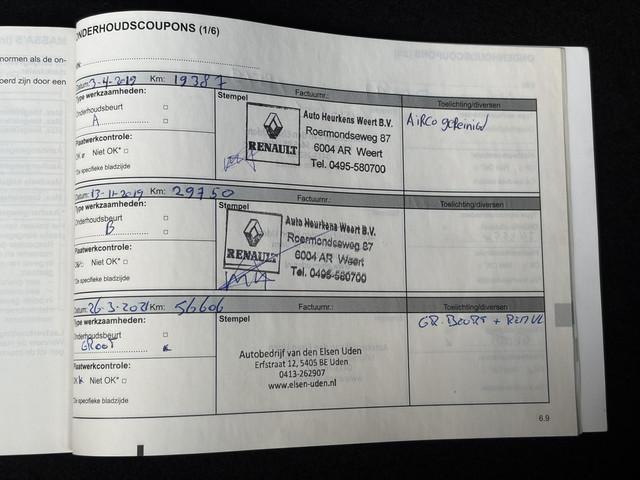 ONDERHOUDSCOUPONS (1/6)
normen als de on-
oerd zijn door een
Datum: 3-4-2019 Km: 19387
Factuurnr.:
Toelichting/diversen
Type werkzaamheden:
Onderhoudsbeurt
A
Plaatwerkcontrole:
OK Niet OK*
*Zie specifieke bladzijde
Stempel
RENAULT
Auto Heurkens Weert B.V.
Roermondseweg 87
6004 AR Weert
Tel. 0495-580700
AiRCO gereinigd
Datum: 13-11-2019 Km: 29750
Factuurnr.:
Toelichting/diversen
Type werkzaamheden:
Onderhoudsbeurt
B
Plaatwerkcontrole:
OK Niet OK*
*Zie specifieke bladzijde
Stempel
RENAULT
Auto Heurkens Weert B.V.
Roermondseweg 87
6004 AR Weert
Tel. 0495-580700
Datum: 26-3-2021 Km: 56606
Factuurnr.:
Toelichting/diversen
Type werkzaamheden:
Onderhoudsbeurt
GROOT
Plaatwerkcontrole:
OK Niet OK*
*Zie specifieke bladzijde
Stempel
Autobedrijf van den Elsen Uden
Erfstraat 12, 5405 BE Uden
0413-262907
www.elsen-uden.nl
GR. BEURT +
6.9